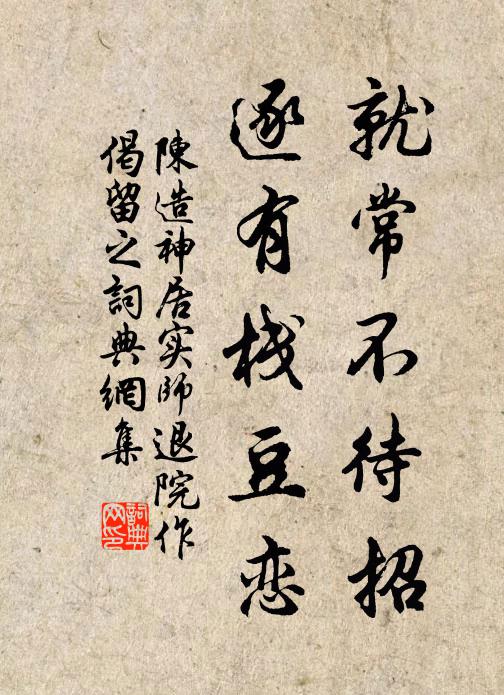 就常不待招
逐有栈豆恋
陳造神居实師退院作
偈留之詞典網集
詞典网印